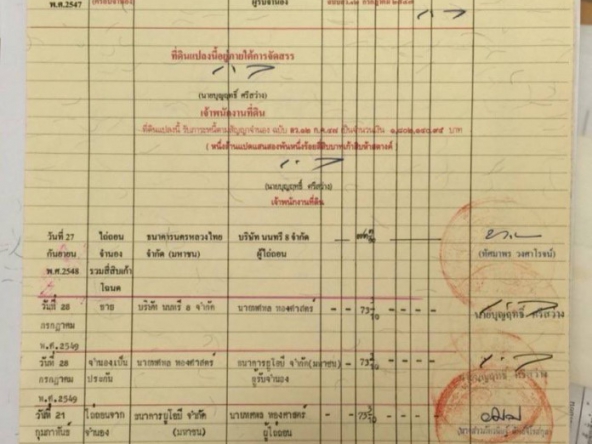 พ.ศ.2547
ผู้รับจำนอง
ที่ดินแปลงนี้อยู่ภายใต้การจัดสรร
(นายบุญฤทธิ์ ศรีสว่าง)
เจ้าพนักงานที่ดิน
ที่ดินแปลงนี้ รับภาระหนี้ตามสัญญาจำนอง ฉบับ ลว.๑๒ ก.ค.๔๗ เป็นจำนวนเงิน ๑,๘๐๒,๑๔๐.๙๕ บาท
( หนึ่งล้านแปดแสนสองพันหนึ่งร้อยสี่สิบบาทเก้าสิบห้าสตางค์ )
(นายบุญฤทธิ์ ศรีสว่าง)
เจ้าพนักงานที่ดิน
วันที่ 27 ไถ่ถอน ธนาคารนครหลวงไทย บริษัท นนทรี 8 จำกัด
กันยายน จำนอง จำกัด (มหาชน) ผู้ไถ่ถอน
(ทัศมาพร วงศาโรจน์)
พ.ศ.2548 รวมสี่สิบเก้า
โฉนด
วันที่ 28 ขาย บริษัท นนทรี 8 จำกัด นายทศพล ทองศาสตร์ - - 73 - - - -
นายบุญฤทธิ์ ศรีสว่าง
กรกฎาคม
พ.ศ.2549
วันที่ 28 จำนองเป็น นายทศพล ทองศาสตร์ ธนาคารยูโอบี จำกัด(มหาชน) - - 73 - - - -
กรกฎาคม ประกัน ผู้รับจำนอง
นายบุญฤทธิ์ ศรีสว่าง
พ.ศ.2549
วันที่ 21 ไถ่ถอนจาก ธนาคารยูโอบี จำกัด นายทศพล ทองศาสตร์ - - 73 - - - -
กุมภาพันธ์ จำนอง (มหาชน) ผู้ไถ่ถอน